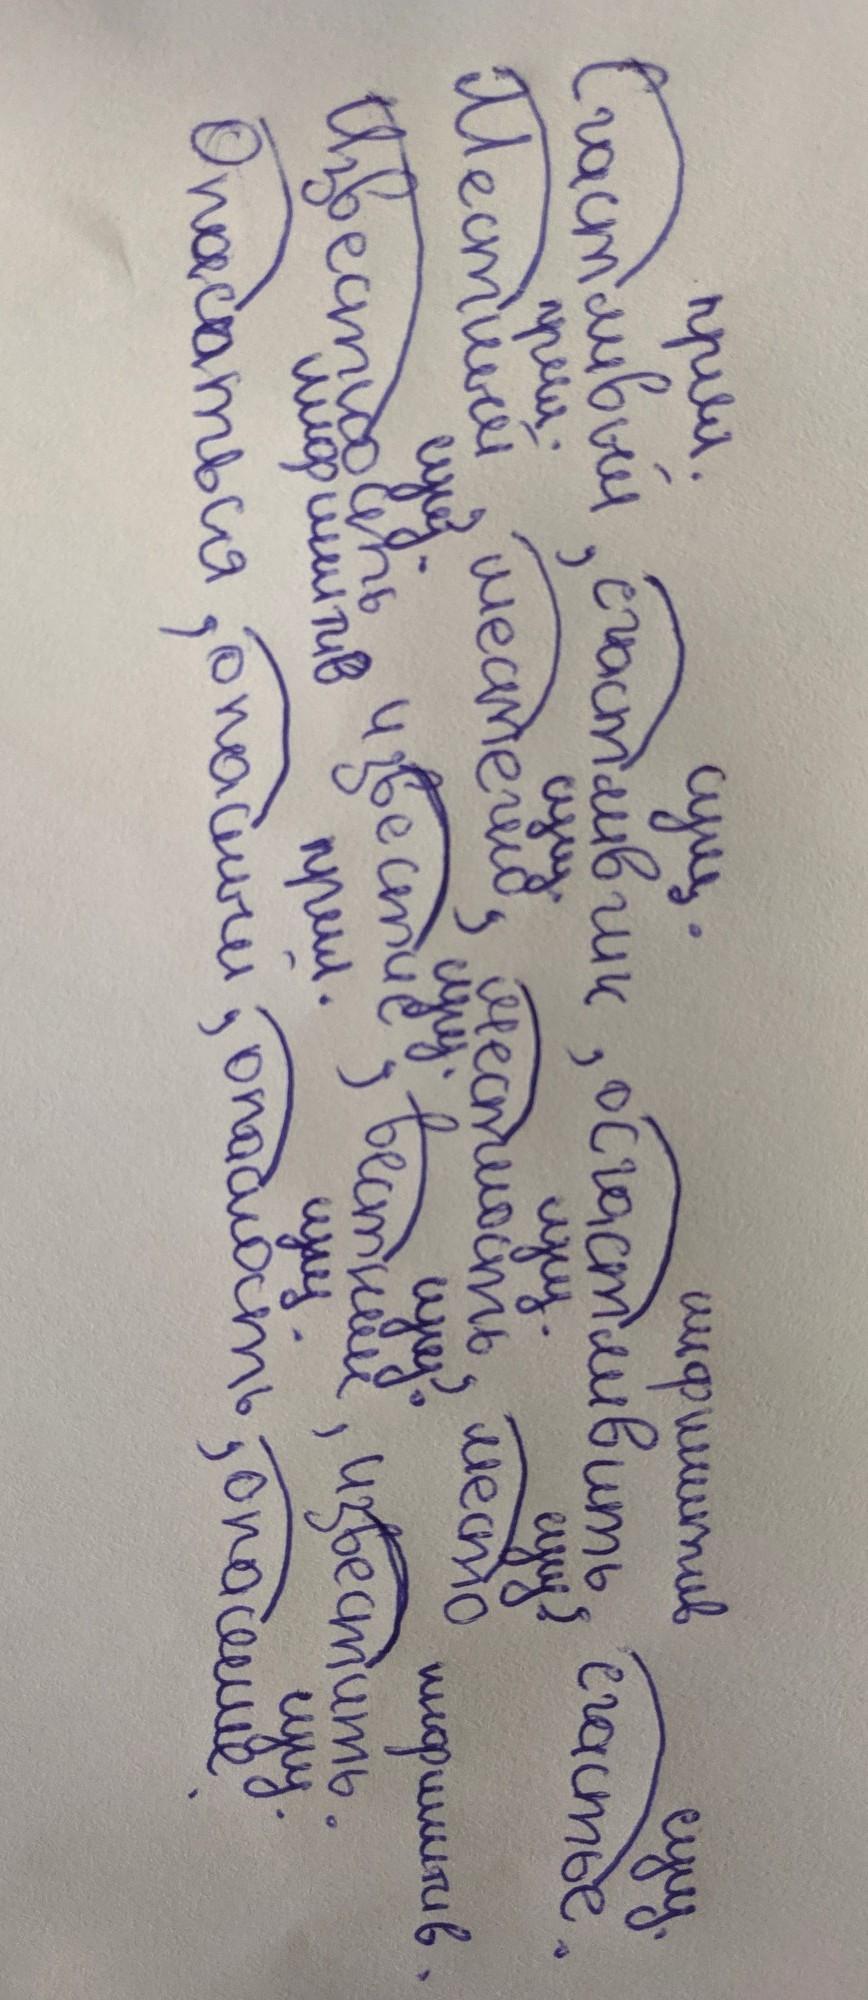 прил. сущ. инфинитив сущ.
Счастливый, счастливчик, осчастливить, счастье.
прил. сущ. сущ. сущ.
Местный, местечко, местность, место
сущ. сущ. сущ. инфинитив.
Известность известие, вестник, известить.
инфинитив прил. сущ. сущ.
Опасаться, опасный, опасность, опасение.